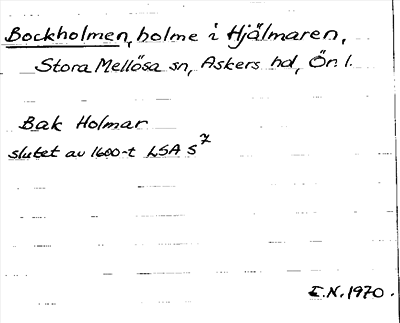 Bockholmen, holme i Hjälmaren,
Stora Mellösa sn, Askers hd, Ör. l.
Bak Holmar
slutet av 1600-t LSA S 7
I.N. 1970.